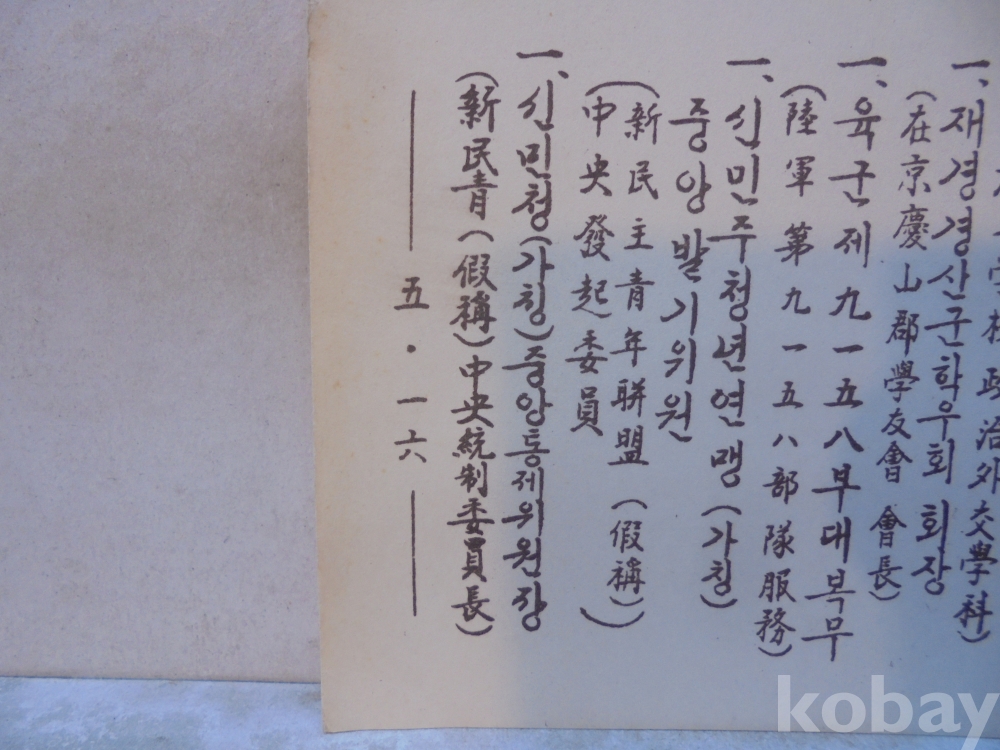 學校政治外交學科)
一、재경경산군학우회 회장
(在京慶山郡學友會 會長)
一、육군제九一五八부대복무
(陸軍第九一五八部隊服務)
一、신민주청년연맹(가칭)
중앙발기위원
(新民主青年聯盟(假稱)
中央發起委員)
一、신민청(가칭)중앙통제위원장
(新民青(假稱)中央統制委員長)
五·一六
kobay